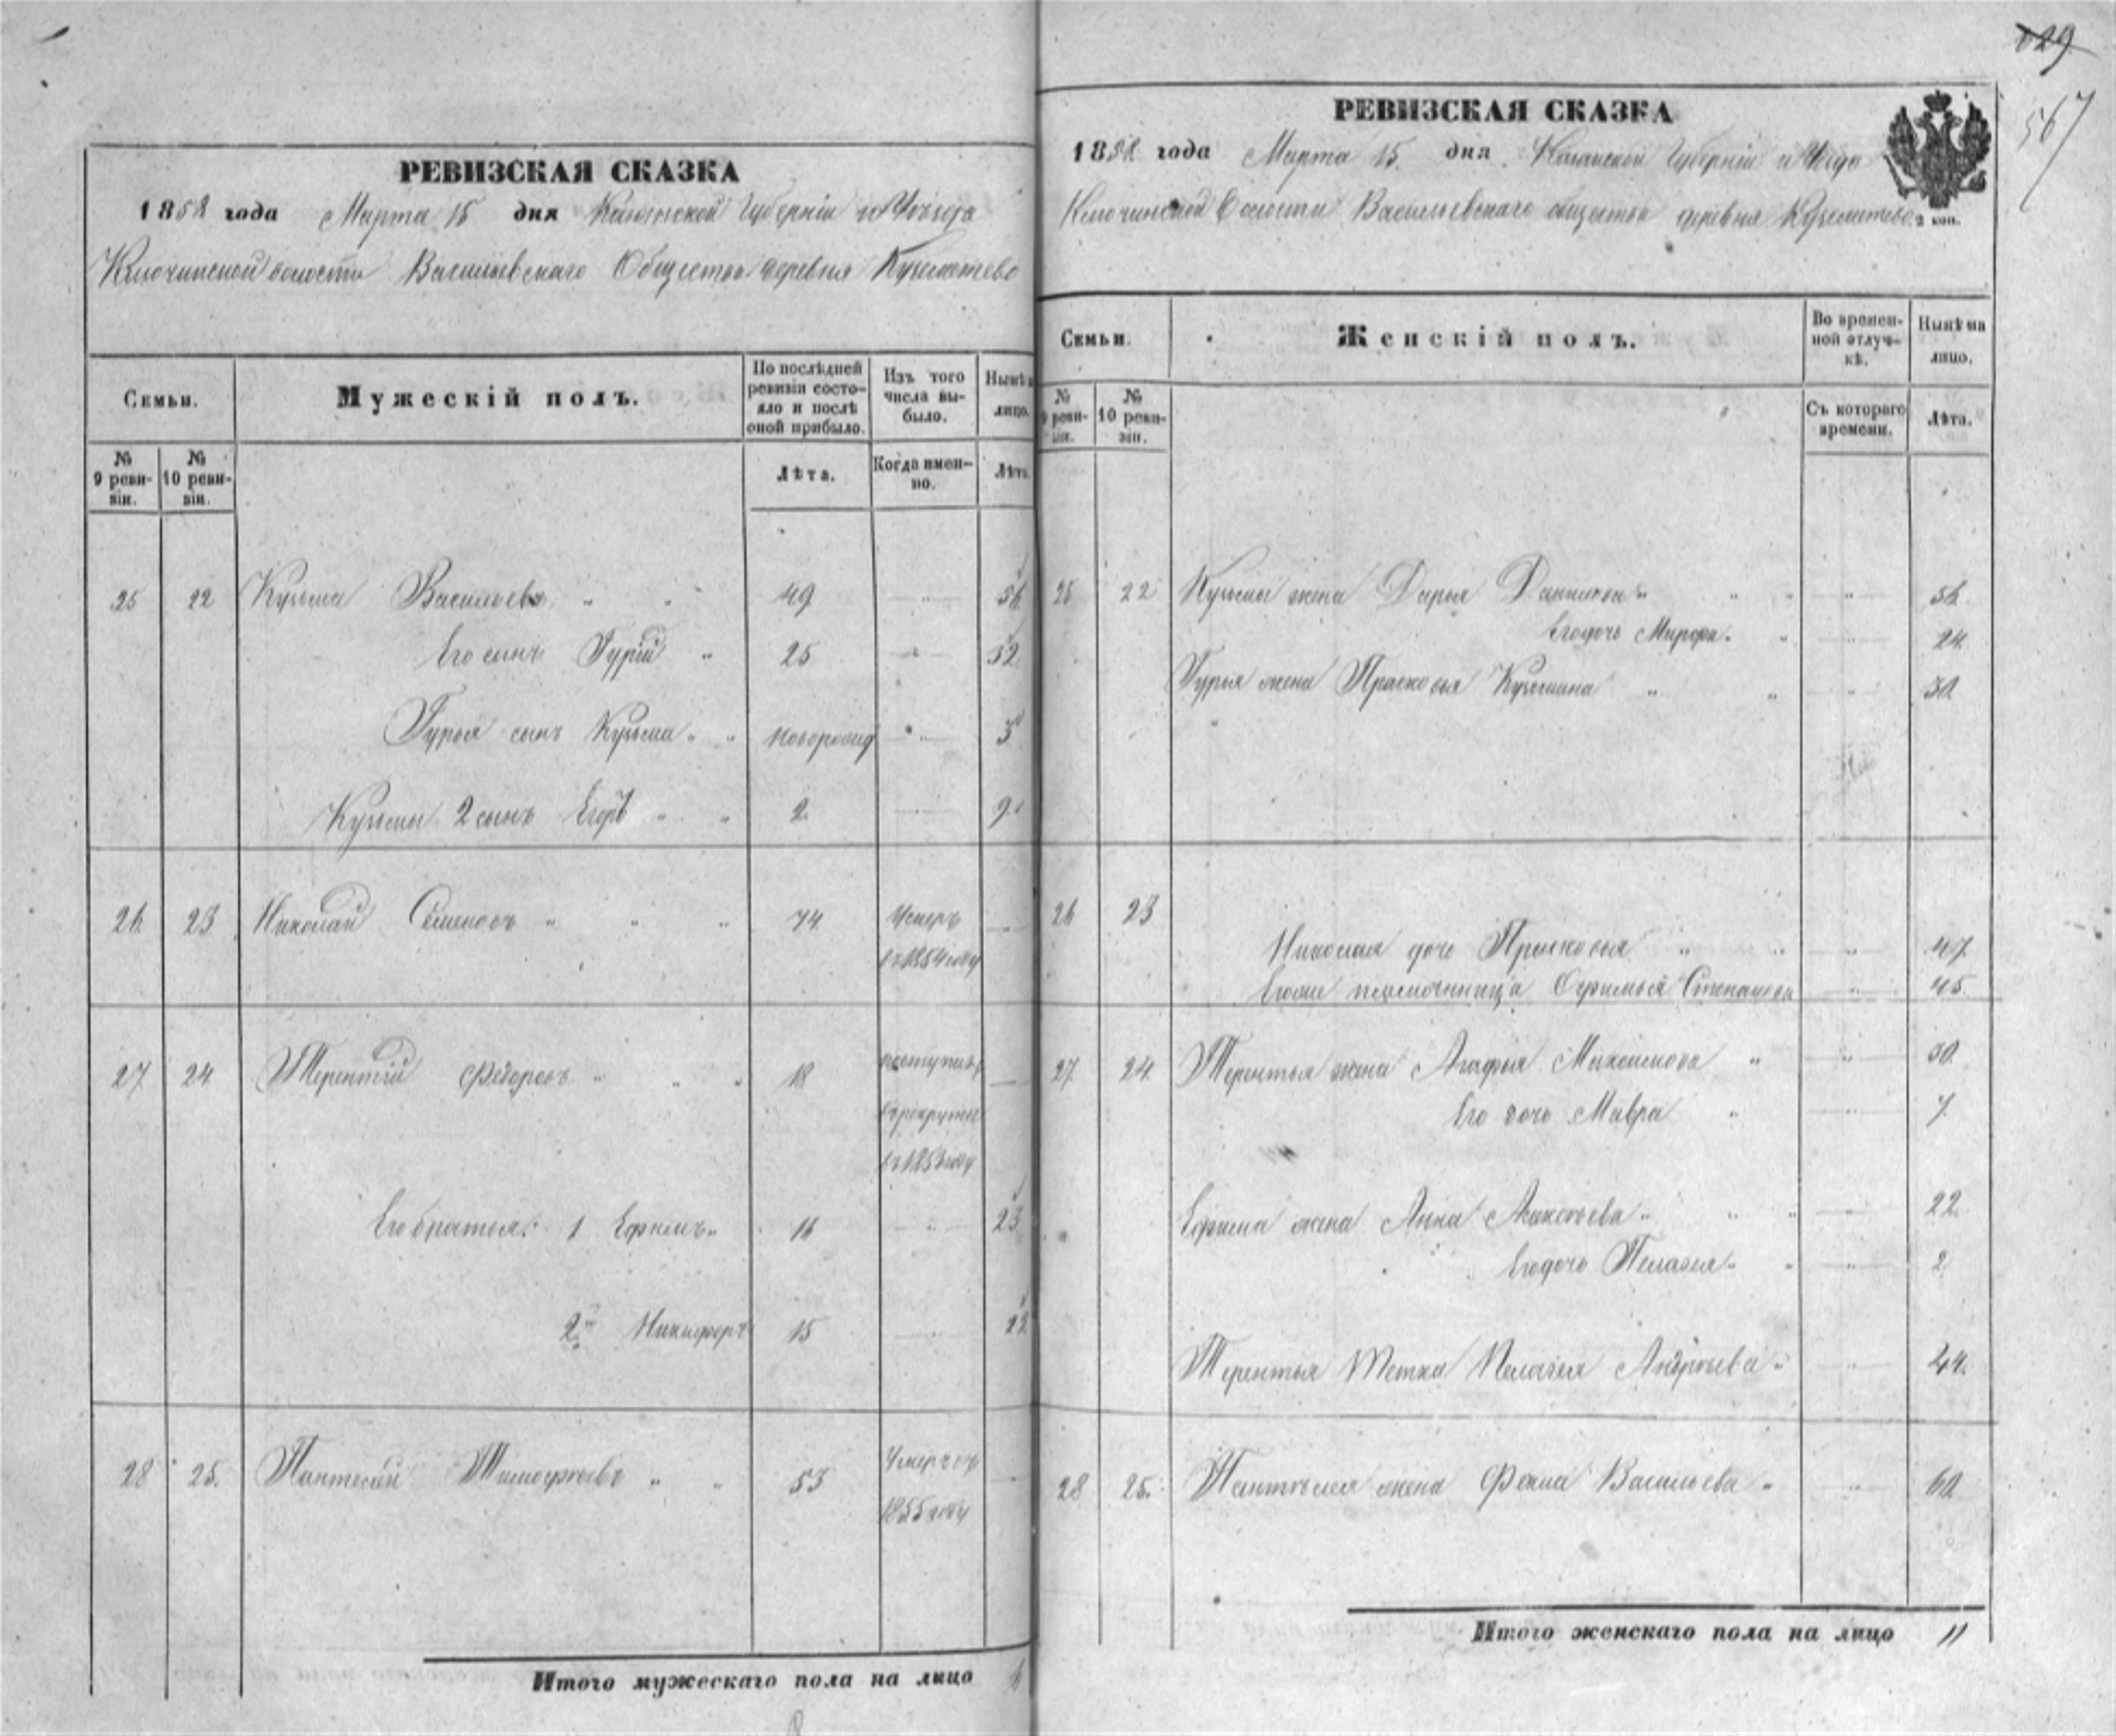 РЕВИЗСКАЯ СКАЗКА
1858 года Марта 15 дня Казанской Губерніи и Уѣзда
Ключинской волости Васильевскаго Общества деревня
Семьи.
Мужескій полъ.
По послѣдней ревизіи состояло и послѣ оной прибыло.
Изъ того числа выбыло.
Нынѣ на лицо.
№ 9 ревизіи.
№ 10 ревизіи.
Лѣта.
Когда именно.
Лѣта.
25 22 Кузьма Васильевъ 49 56
Его сынъ Гурій 25 32
Гурья сынъ Кузьма новорожд 3
Кузьмы 2 сынъ Егоръ 2 9
26 23 Николай Семеновъ 74 Умеръ
въ 1854 году
27 24 Терентій Федоровъ 18 поступилъ
в рекруты
Его братья: 1 Ефимъ 16 23
2й Никифоръ 15 22
28 25. Пантелей Тимофѣевъ 53 Умеръ въ
1855 году
Итого мужескаго пола на лицо
029
567
РЕВИЗСКАЯ СКАЗКА
1858 года Марта 15 дня Казанской Губерніи и Уѣзда
Ключинской Волости Васильевскаго общества деревня
2 коп.
Семьи.
Женскій полъ.
Во временной отлучкѣ.
Нынѣ на лицо.
№ 9 ревизіи.
№ 10 ревизіи.
Съ котораго времени.
Лѣта.
25 22 Кузьмы жена Дарья Данилова 56
Его дочь 24
Гурья жена Прасковья Кузьмина 30
26 23
Николая дочь Прасковья 47
племянница Офимья Степанова 45
27 24 Терентья жена Агафья Максимова 30
Его дочь Мавра 7
Ефима жена Анна Алексѣева 22
Его дочь Пелагея 2
Терентья тетка Пелагея Андрѣева 44
28 25. Пантелея жена Васильева 60
Итого женскаго пола на лицо 11